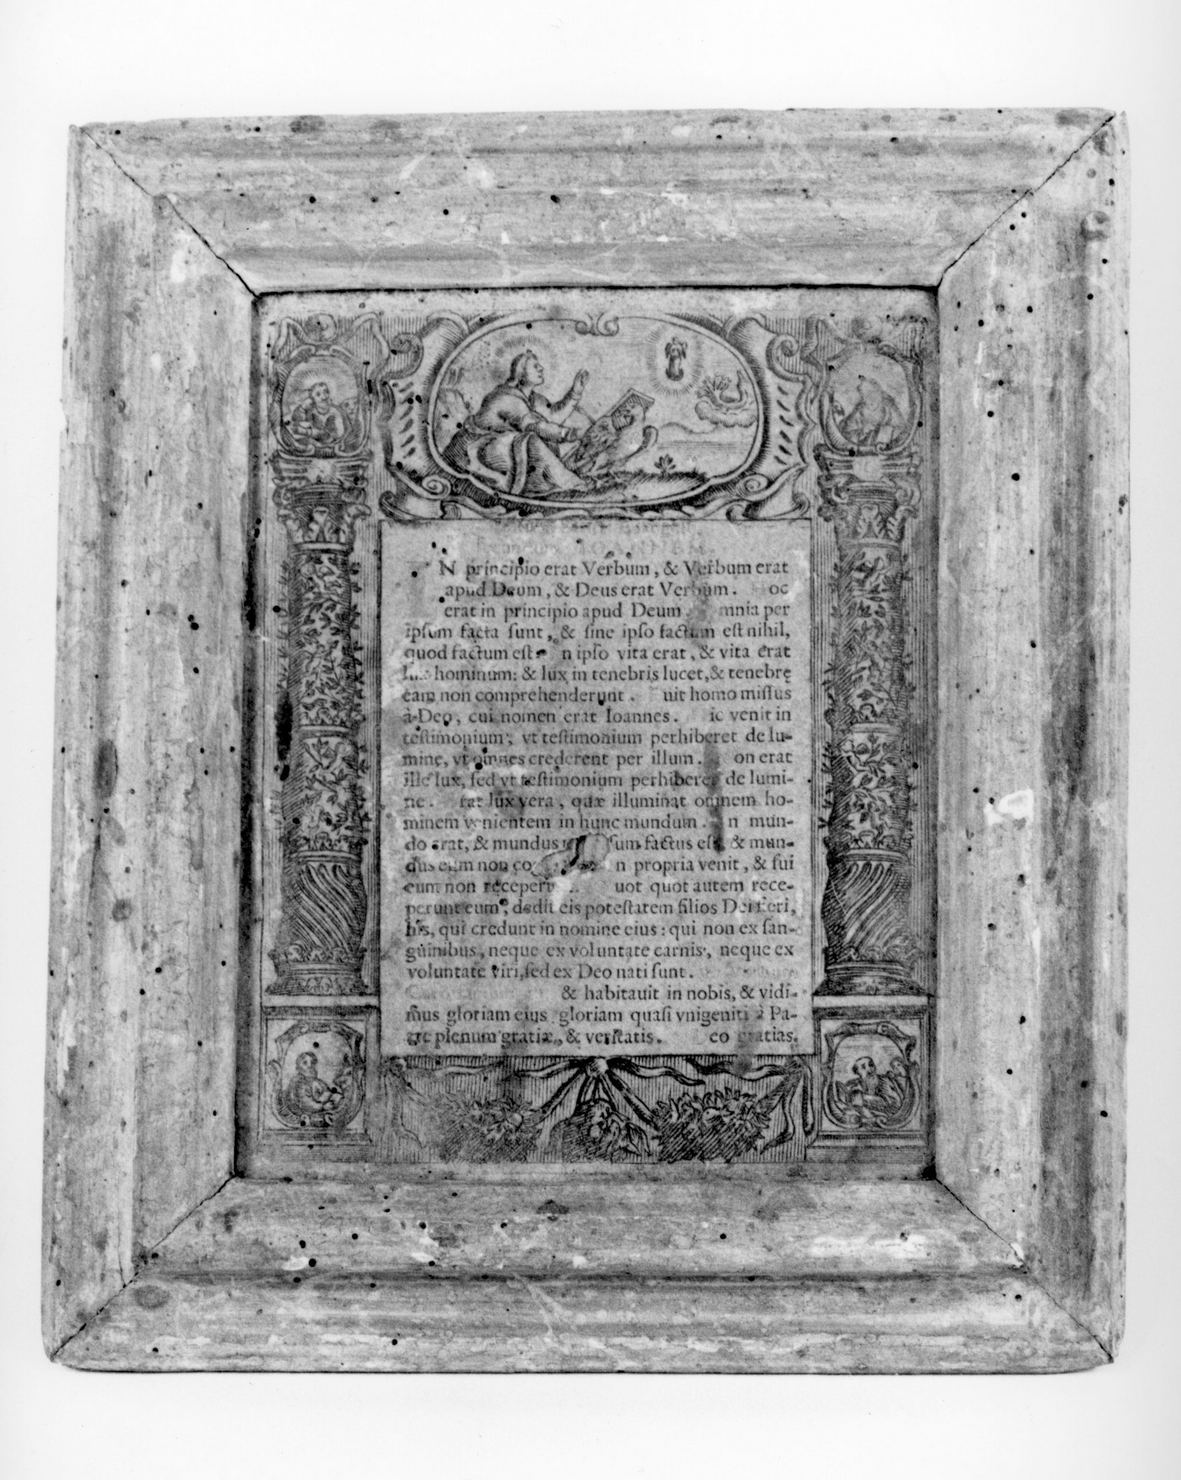 N principio erat Verbum, & Verbum erat
apud Deum, & Deus erat Verbum. oc
erat in principio apud Deum. mnia per
ipsum facta sunt, & sine ipso factum est nihil,
quod factum est n ipso vita erat, & vita erat
hominum: & lux in tenebris lucet, & tenebrę
eam non comprehenderunt. uit homo missus
à Deo, cui nomen erat Ioannes. ic venit in
testimonium, vt testimonium perhiberet de lu-
mine, vt omnes crederent per illum. on erat
ille lux, sed vt testimonium perhiberet de lumi-
ne. rat lux vera, quæ illuminat omnem ho-
minem venientem in hunc mundum. n mun-
do erat, & mundus sum factus est, & mun-
dus eum non co n propria venit, & sui
eum non receperu uot quot autem rece-
perunt eum, dedit eis potestatem filios Dei fieri,
his, qui credunt in nomine eius: qui non ex san-
guinibus, neque ex voluntate carnis, neque ex
voluntate viri, sed ex Deo nati sunt.
& habitauit in nobis, & vidi-
mus gloriam eius, gloriam quasi vnigeniti à Pa-
tre plenum gratiæ, & veritatis. eo gratias.